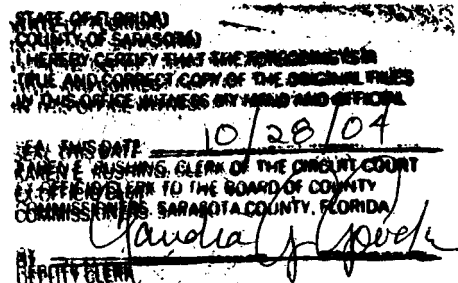 STATE OF FLORIDA)
COUNTY OF SARASOTA)
I HEREBY CERTIFY THAT THE FOREGOING IS A
TRUE AND CORRECT COPY OF THE ORIGINAL FILES
IN THIS OFFICE WITNESS MY HAND AND OFFICIAL
SEAL THIS DATE 10/28/04
KAREN E. RUSHING, CLERK OF THE CIRCUIT COURT
EX-OFFICIO CLERK TO THE BOARD OF COUNTY
COMMISSIONERS, SARASOTA COUNTY, FLORIDA
BY
DEPUTY CLERK